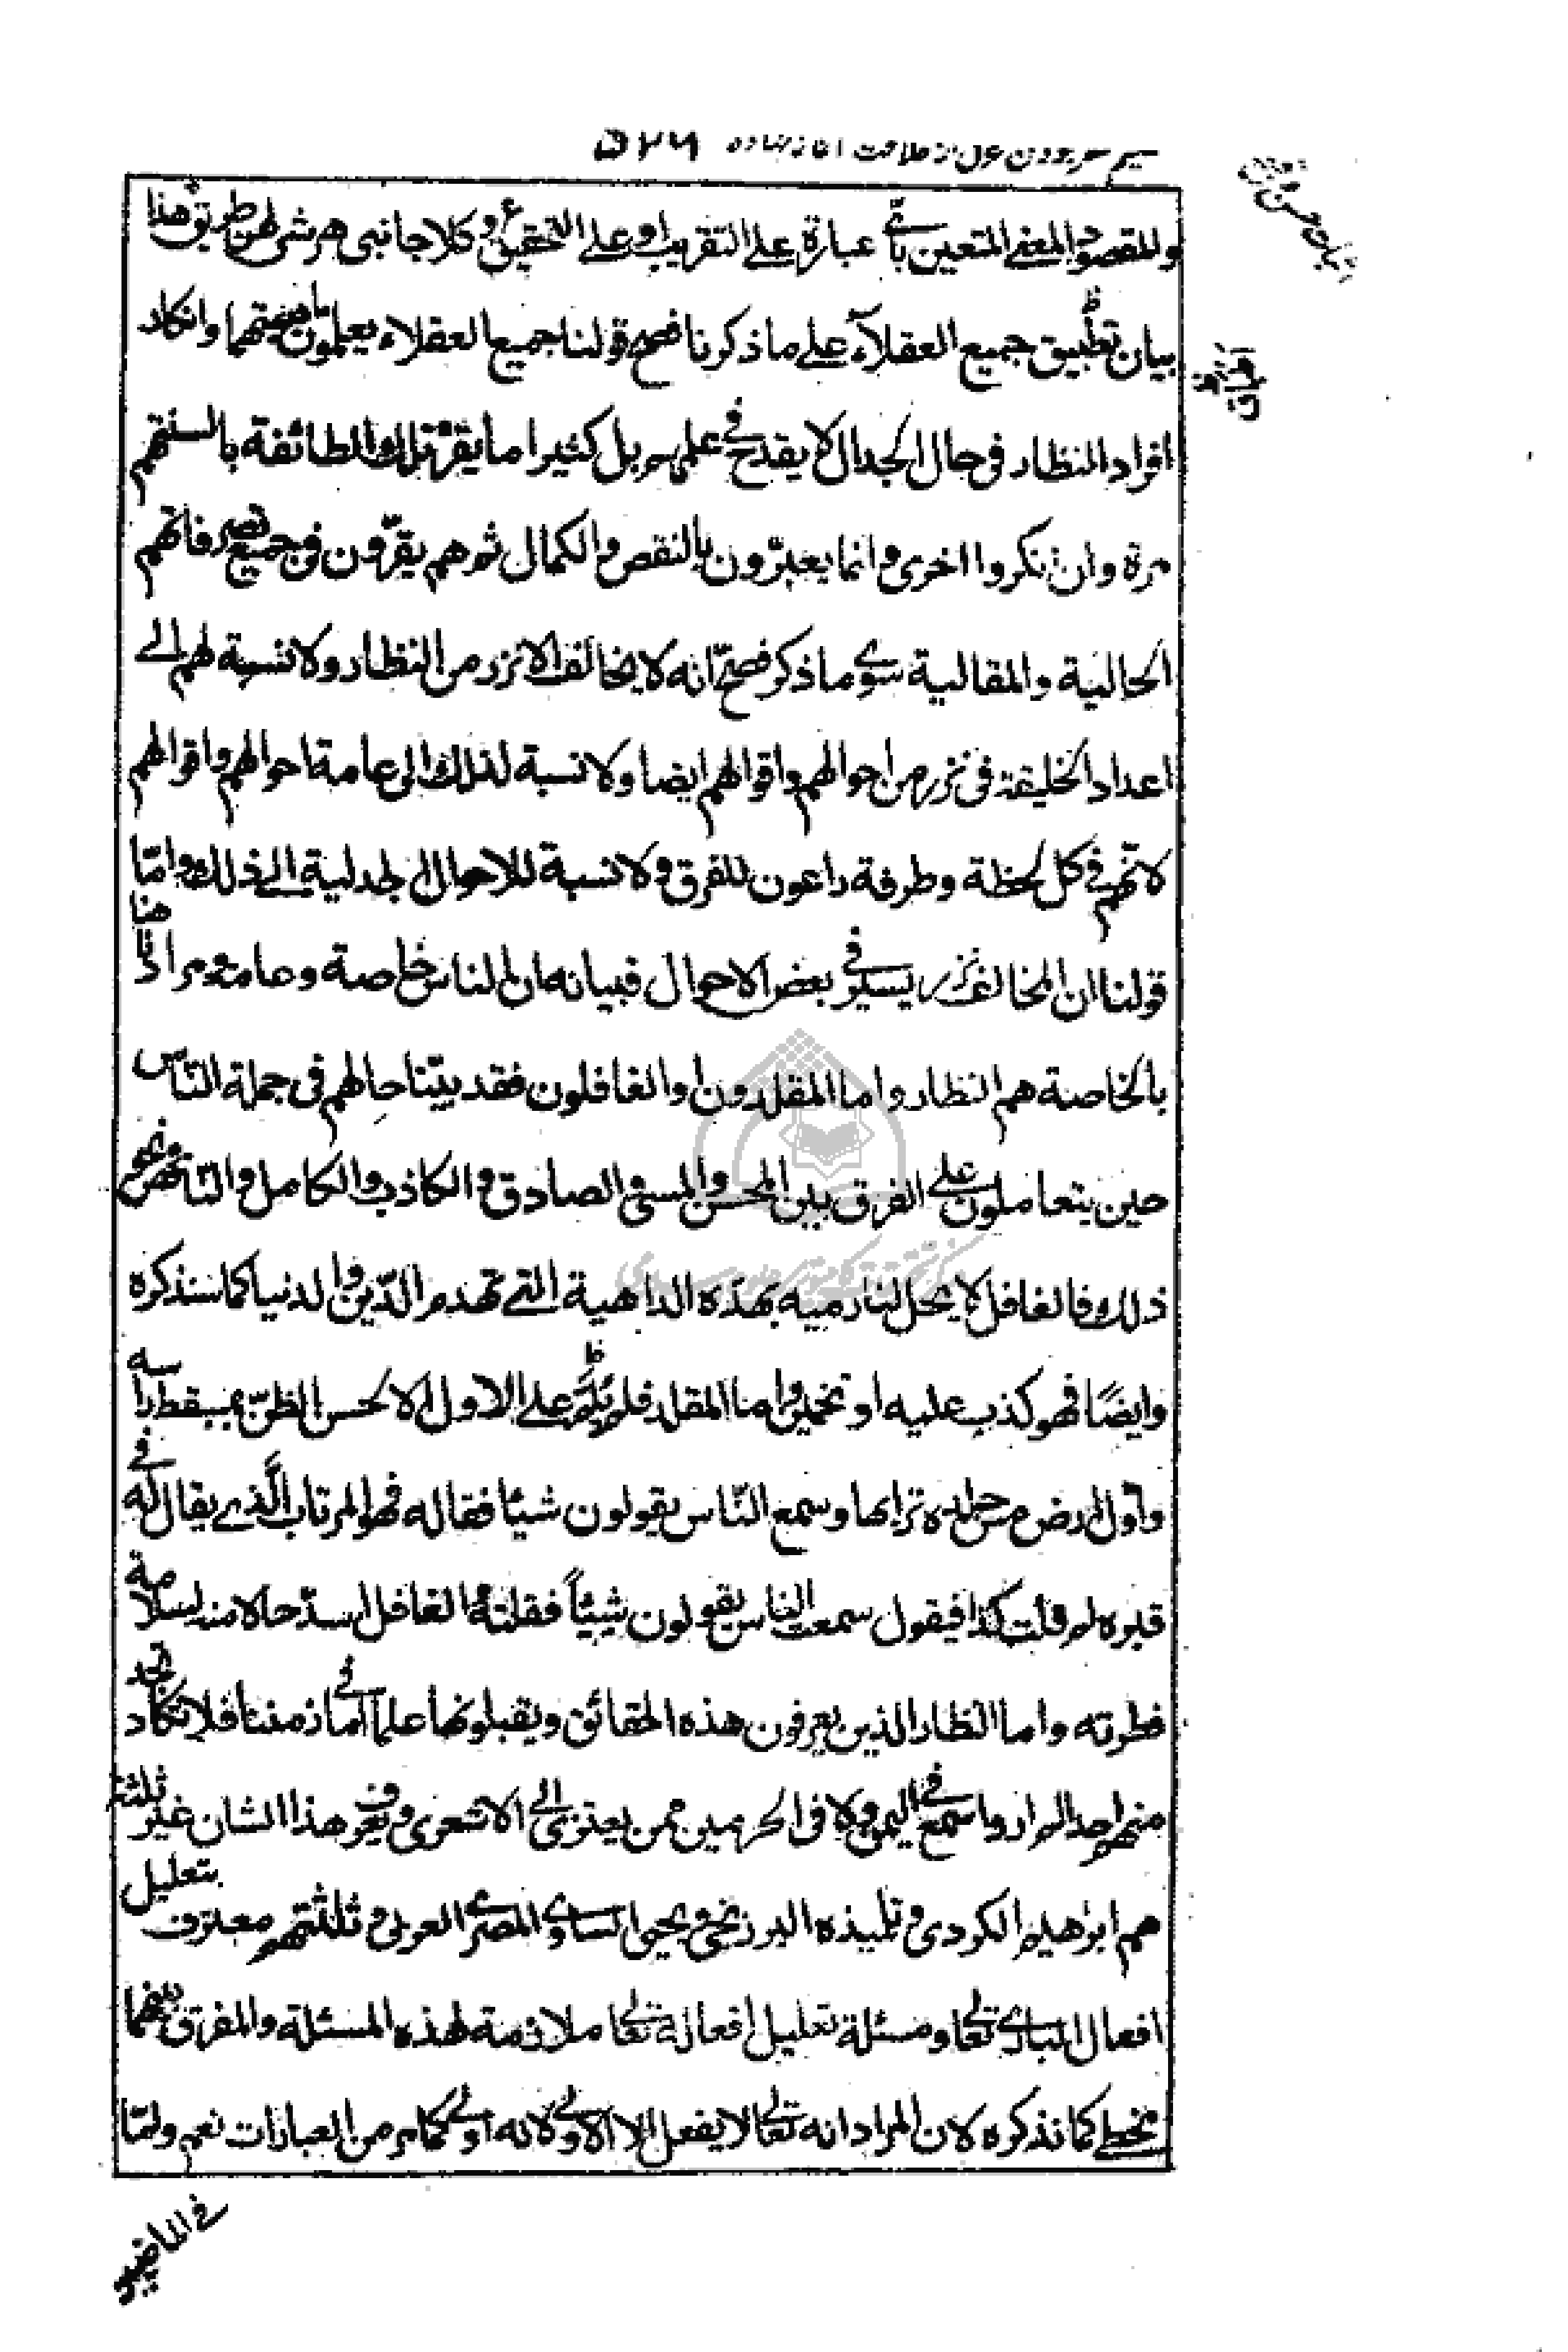 ٥٧٦
وللمقصود المعنى المتعين بأي عبارة على التقريب او على التحقيق وكلا جانبي هرشى لهن طريق هذا
بيان تطبيق جميع العقلاء على ما ذكرنا فصح قولنا جميع العقلاء يعلمون وانكار
افراد النظار فى حال الجدال لا يقدح في علمهم بل كثيرا ما يقر تلك الطائفة بالسنتهم
مرة وان نكروا اخرى وانما يعبرون بالنقص والكمال ثم هم يقرّون فى جميع تصرفاتهم
الحالية والمقالية سوى ما ذكر فصحّ انه لا يخالف الا نزر من النظار ولا نسبة لهم الى
اعداد الخليقة فى نزر من احوالهم واقوالهم ايضا ولا نسبة لذلك الى عامة احوالهم واقوالهم
لانهم في كل لحظة وطرفة راعون للفرق ولا نسبة للاحوال الجدلية الى ذلك وامّا
قولنا ان المخالف نزر يسير في بعض الاحوال فبيانه ان للناس خاصة وعامة ومرادنا هنا
بالخاصة هم النظار واما المقلدون والغافلون فقد بيّنا حالهم فى جملة النّاس
حين يتعاملون على الفرق بين المحسن والمسئ والصادق والكاذب والكامل والناقص ونحو
ذلك فالغافل لا يحل لنا رميه بهذه الداهية التي تهدم الدّين والدنيا كما سنذكره
وايضًا فهو كذب عليه او تخمين واما المقلد فلم يزد على الاول الا لحسن الظنّ بمسقط راسه
واول ارض مس جلده ترابها وسمع النّاس يقولون شيئا فقاله فهو المرتاب الّذي يقال له في
قبره لم قلت كذا فيقول سمعت الناس يقولون شيئاً فقلته والغافل اسدّ حالا منه لسلامة
فطرته واما النظار الذين يعرفون هذه الحقائق ويقبلونها علما في ازمنتنا فلا تكاد تجد
منهم احدا لم ار وما سمع في اليمن ولا فى الحرمين ممن يعتزى الى الاشعرى ويعرف هذا الشان غير ثلثة
هم ابرهيم الكردى وتلميذه البرزنجى ويحيى الساوي المصري العربى وثلثتهم معترف بتعليل
افعال البارى تعالى ومسئلة تعليل افعاله تعالى ملازمة لهذه المسئلة والمفرق بينهما
مخطئ كما نذكره لان المراد انه تعالى لا يفعل الا الاولى لانه اولى كما مر من العبارات نعم ولمّا
في الماضيه